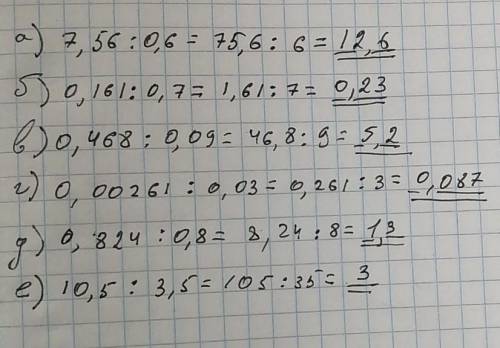 а) 7,56 : 0,6 = 75,6 : 6 = 12,6
б) 0,161 : 0,7 = 1,61 : 7 = 0,23
в) 0,468 : 0,09 = 46,8 : 9 = 5,2
г) 0,00261 : 0,03 = 0,261 : 3 = 0,087
д) 0,824 : 0,8 = 8,24 : 8 = 1,3
е) 10,5 : 3,5 = 105 : 35 = 3